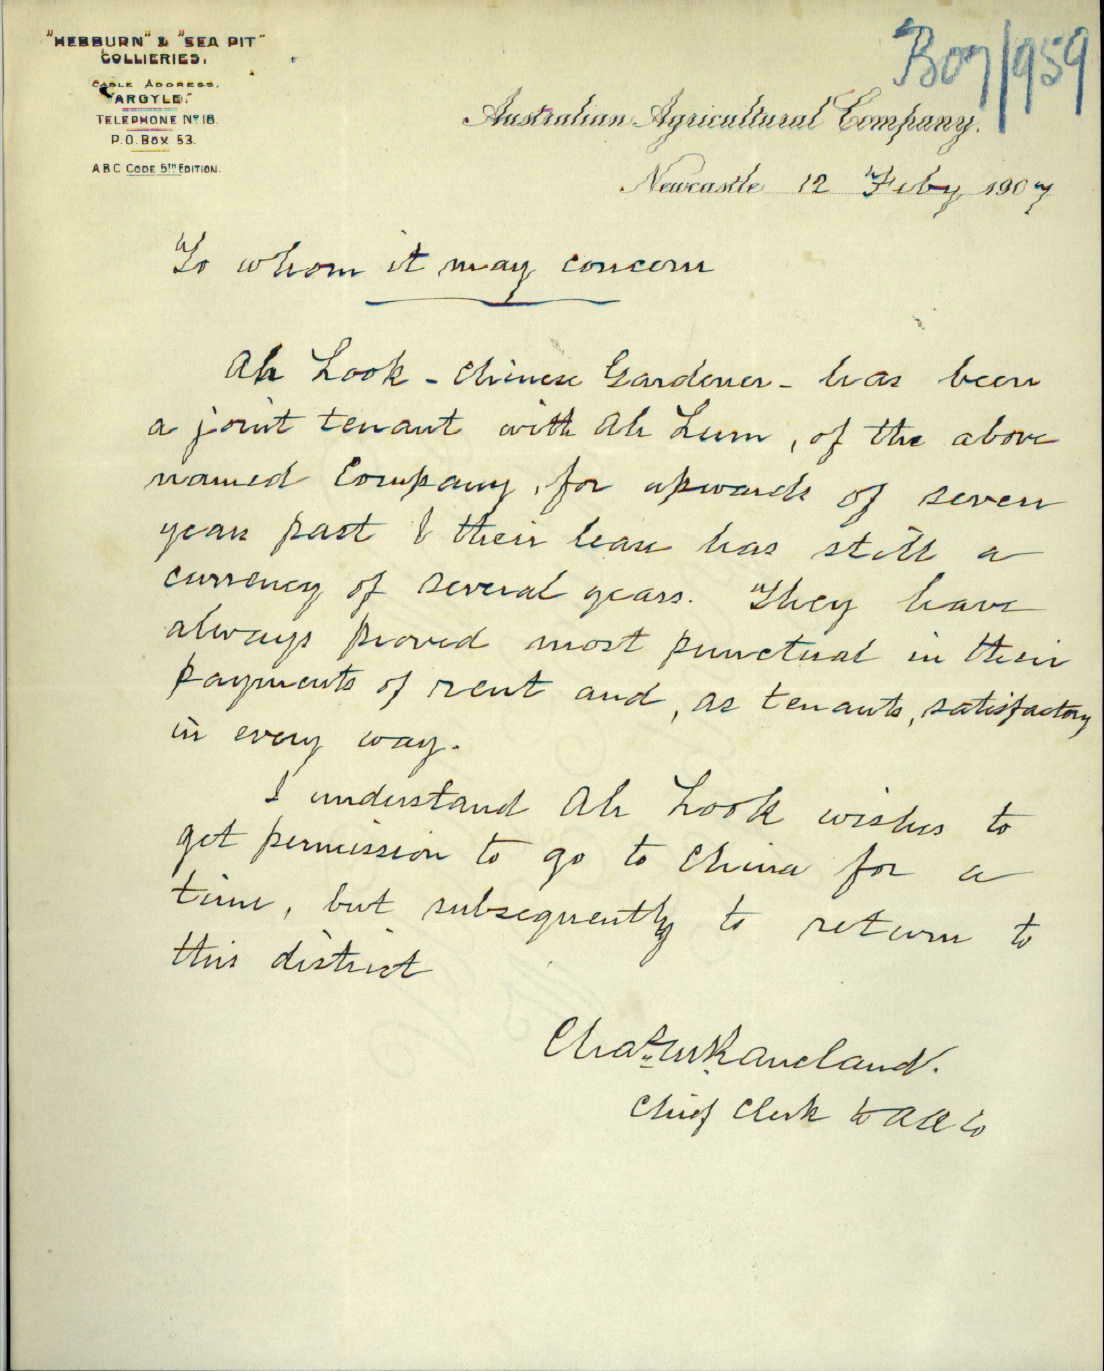 "HEBBURN" & "SEA PIT"
COLLIERIES.
CABLE ADDRESS.
"ARGYLE."
TELEPHONE No 18.
P.O. BOX 53.
A B C CODE 5TH EDITION.
B07/959
Australian Agricultural Company.
Newcastle 12 Feby 1907
To whom it may concern
Ah Look - Chinese Gardener - has been
a joint tenant with Ah Lum, of the above
named Company, for upwards of seven
years past & their lease has still a
currency of several years. They have
always proved most punctual in their
payments of rent and, as tenants, satisfactory
in every way.
I understand Ah Look wishes to
get permission to go to China for a
time, but subsequently to return to
this district
Chas W
Chief Clerk to AACo